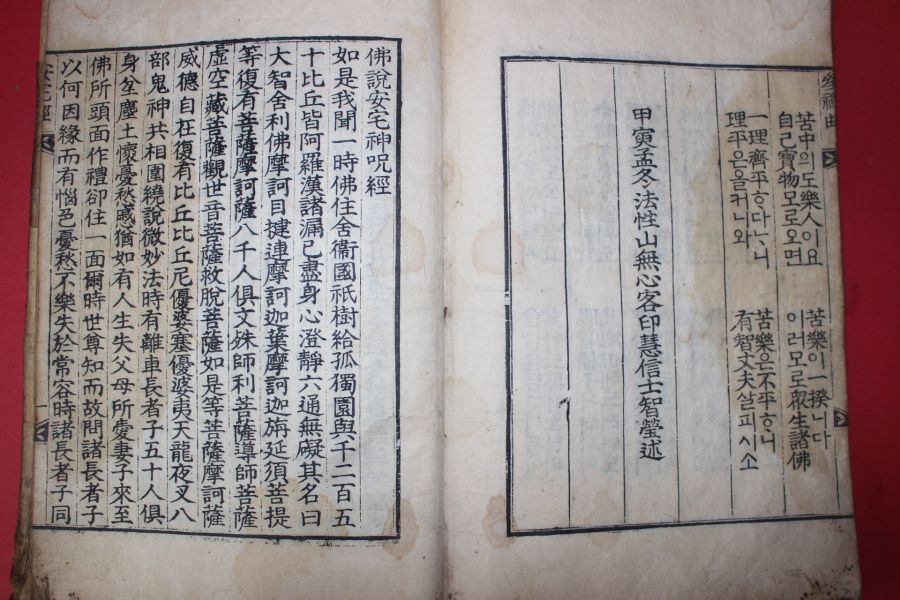 參禪曲
苦中의도樂人이요 苦樂이一揆니다
自己寶物모로오면 이러모로衆生諸佛
一理齊平ᄒᆞ다ᄒᆞ니 苦樂은不平ᄒᆞ니
理平은을커니와 有智丈夫살피시소
甲寅孟冬法性山無心客印慧信士智瑩述
佛說安宅神呪經
如是我聞一時佛住舍衞國祇樹給孤獨園與千二百五
十比丘皆阿羅漢諸漏已盡身心澄靜六通無礙其名曰
大智舍利佛摩訶目揵連摩訶迦葉摩訶迦旃延須菩提
等復有菩薩摩訶薩八千人俱文殊師利菩薩導師菩薩
虛空藏菩薩觀世音菩薩救脫菩薩如是等菩薩摩訶薩
威德自在復有比丘比丘尼優婆塞優婆夷天龍夜叉八
部鬼神共相圍繞說微妙法時有離車長者子五十人俱
身坌塵土懷憂愁慼猶如有人生失父母所愛妻子來至
佛所頭面作禮卻住一面爾時世尊知而故問諸長者子
以何因緣而有惱色憂愁不樂失於常容時諸長者子同
安宅經
一